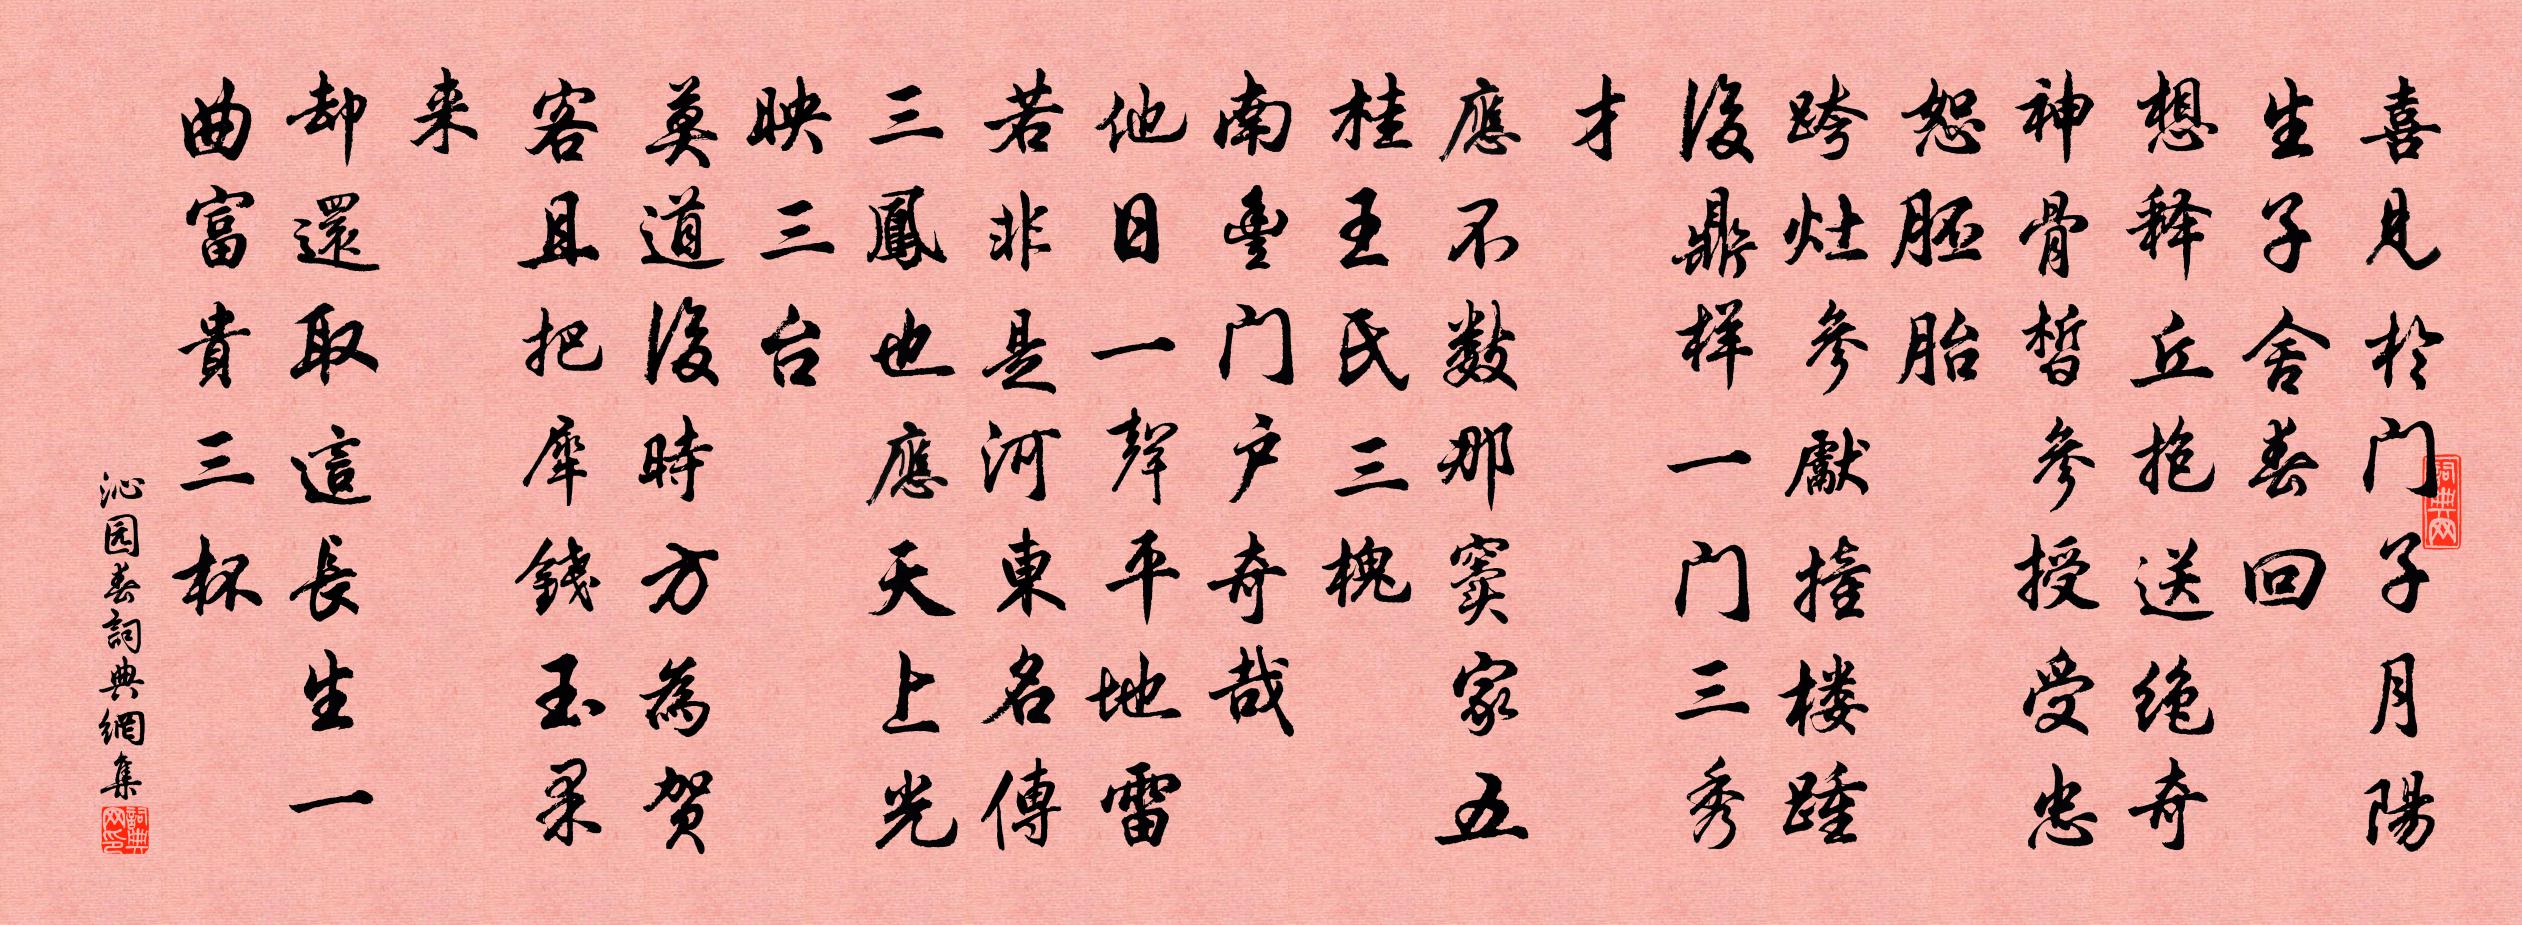 喜見於门子月陽
生子舍春回
想释丘抱送绝奇
神骨皙参授受忠
恕胚胎
跨灶参獻撞楼踵
後鼎样一门三秀
才
應不数那窦家五
桂王氏三槐
南豊门户奇哉
他日一聲平地雷
若非是河東名傳
三鳳也應天上光
映三台
莫道後時方為贺
客且把犀錢玉果
来
却還取這長生一
曲富貴三杯
沁园春詞典網集
词典网
詞典网印